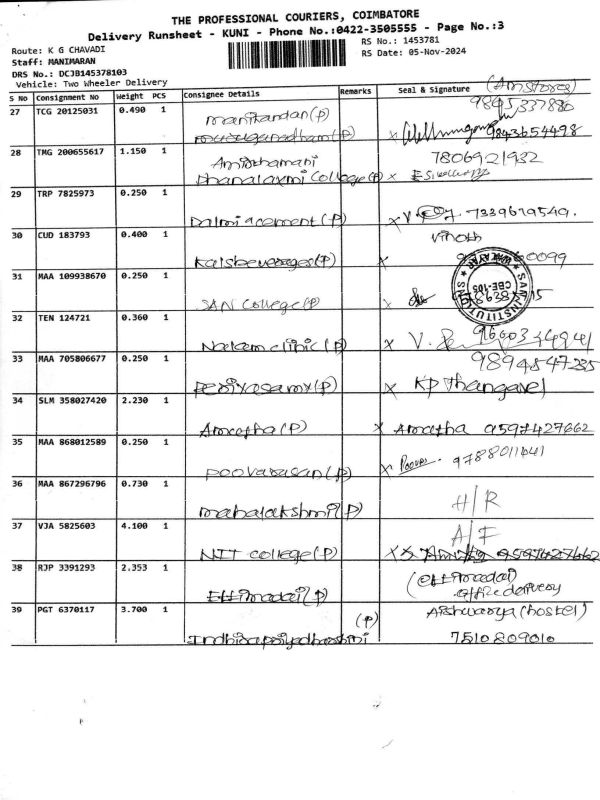 THE PROFESSIONAL COURIERS, COIMBATORE
Delivery Runsheet - KUNI - Phone No.:0422-3505555 - Page No.:3
Route: K G CHAVADI
RS No.: 1453781
Staff: MANIMARAN
RS Date: 05-Nov-2024
DRS No.: DCJB145378103
Vehicle: Two Wheeler Delivery
S No Consignment No Weight PCS Consignee Details Remarks Seal & Signature
27 TCG 20125031 0.490 1 manikandan(p)
9843654498
28 TMG 200655617 1.150 1 7806921932
Dhanalaxmi College(p) x
29 TRP 7825973 0.250 1
Dalmiacement(p) x 7339619549.
30 CUD 183793 0.400 1 Vinoth
Kalsbeverages(p) x
31 MAA 109938670 0.250 1
SAN College(p) x
32 TEN 124721 0.360 1
Nalam clinic(p) x
33 MAA 705806677 0.250 1 9894547235
Periyasamy(p) x KP Thangavel
34 SLM 358027420 2.230 1
Amretha(p) x Amretha 9597427662
35 MAA 868012589 0.250 1
Poovarasan(p) x 9788011041
36 MAA 867296796 0.730 1
mahalakshmi(p) H/R
37 VJA 5825603 4.100 1 A/F
NIT college(p)
38 RJP 3391293 2.353 1 (Ettimadai
Ettimadai(p) office delivery
39 PGT 6370117 3.700 1 Aishwarya (hostel)
(p)
7510809010